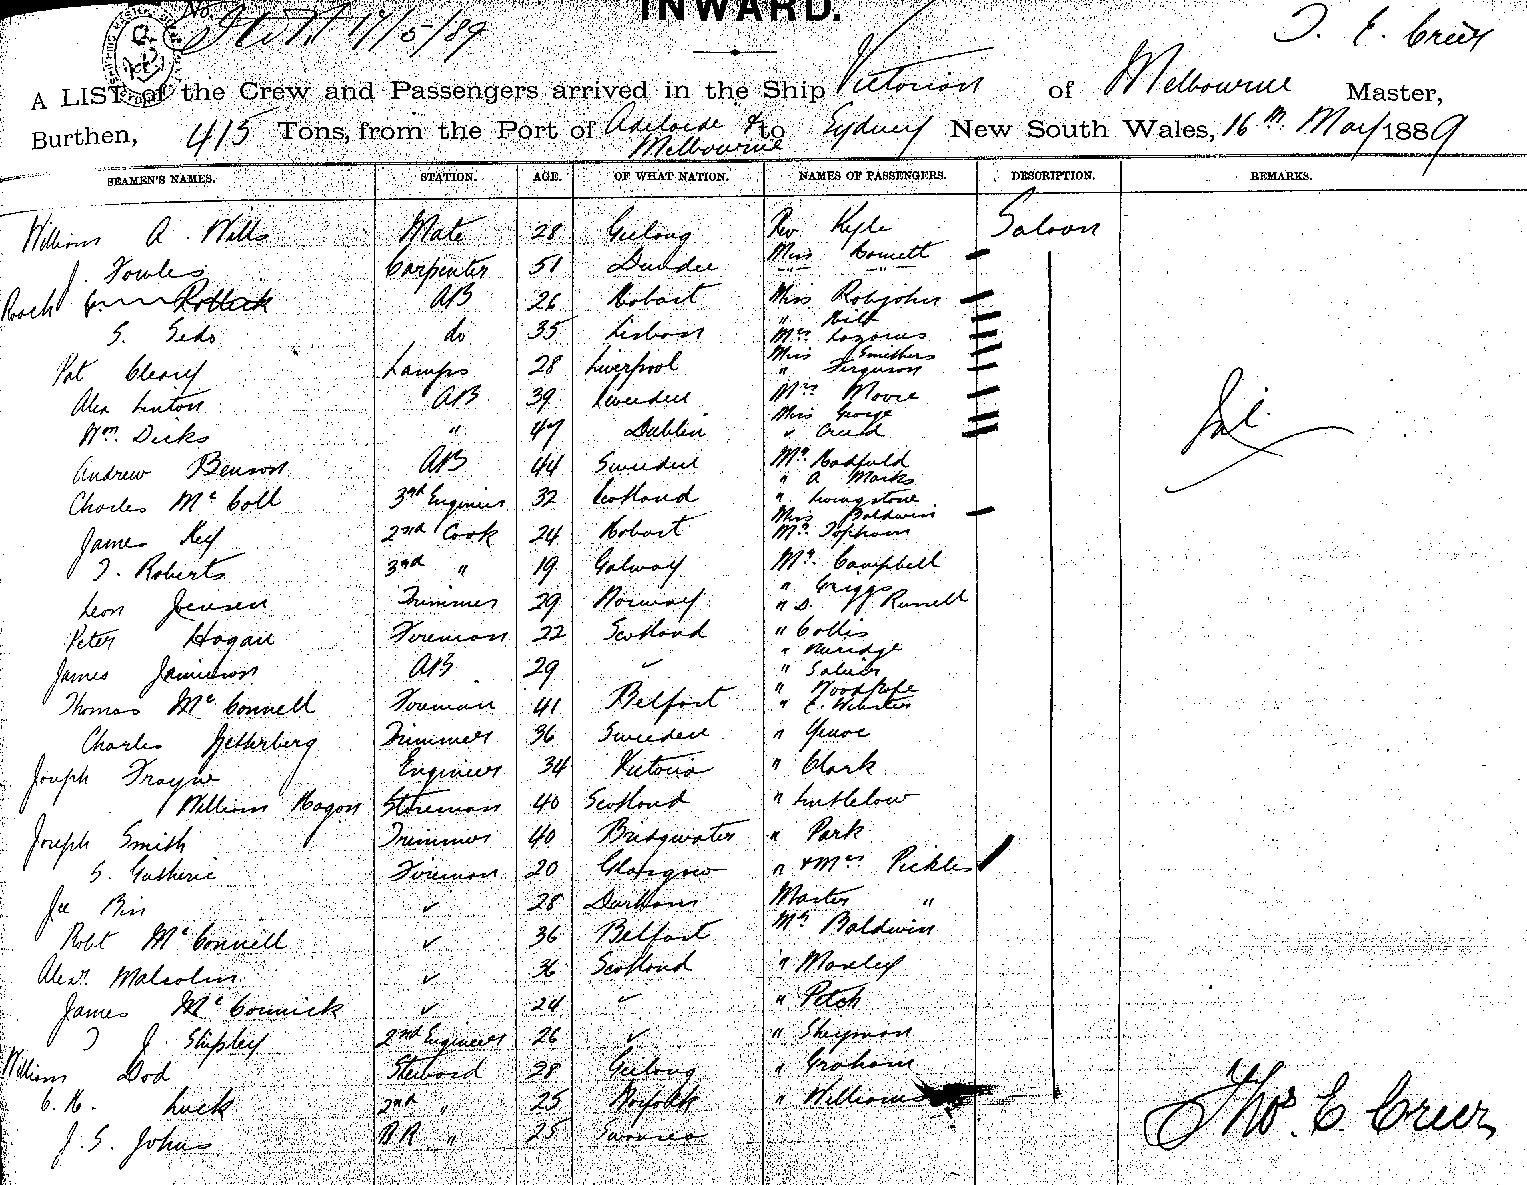 INWARD.
17/5/89
T. E. Creer
A LIST of the Crew and Passengers arrived in the Ship Victorian of Melbourne Master,
Burthen, 415 Tons, from the Port of Adelaide & Melbourne to Sydney New South Wales, 16th May 1889
SEAMEN'S NAMES. STATION. AGE. OF WHAT NATION. NAMES OF PASSENGERS. DESCRIPTION. REMARKS.
William A. Wills Mate 28 Geelong Rev Kyle Saloon
J. Fowles Carpenter 51 Dundee Miss
AB 26 Hobart Miss Robjohn
S. do 35 Lisbon " Hill
Mrs Lazarus
Pat Cleary Lamps 28 Liverpool Miss Smithers
" Ferguson
Alex Linton AB 39 Sweden Mrs Moore
Miss George
Wm. Dicks " 47 Dublin
Andrew Benson AB 44 Sweden Mr Hadfield
" A Marks
Charles McColl 3rd Engineer 32 Scotland " Livingstone
Miss Baldwin
James Key 2nd Cook 24 Hobart Mr Topham
T. Roberts 3rd " 19 Galway Mr Campbell
" Griggs
Leon Jensen Trimmer 29 Norway " D. Russell
Peter Hogan Foreman 22 Scotland " Collis
James Jamieson AB 29 "
Thomas McConnell Foreman 41 Belfast
" E. Webster
Charles Zetterberg Trimmer 36 Sweden "
Joseph Frayne Engineer 34 Victoria " Clark
William Hagon Storeman 40 Scotland " Littlelow
Joseph Smith Trimmer 40 Bridgwater " Park
S. Guthrie Foreman 20 Glasgow " & Mrs Pickles
28 Durham Master "
Robt McConnell " 36 Belfast Mr Baldwin
Alexr. Malcolm " 36 Scotland " Morley
James McCormick " 24 " " Petch
J. Shipley 2nd Engineer 26 "
William Dod Steward 28 Geelong " Graham
C. H. Luck 2nd " 25 Norfolk " Williams
J. S. Johns " 25 Swansea
Thos. E Creer